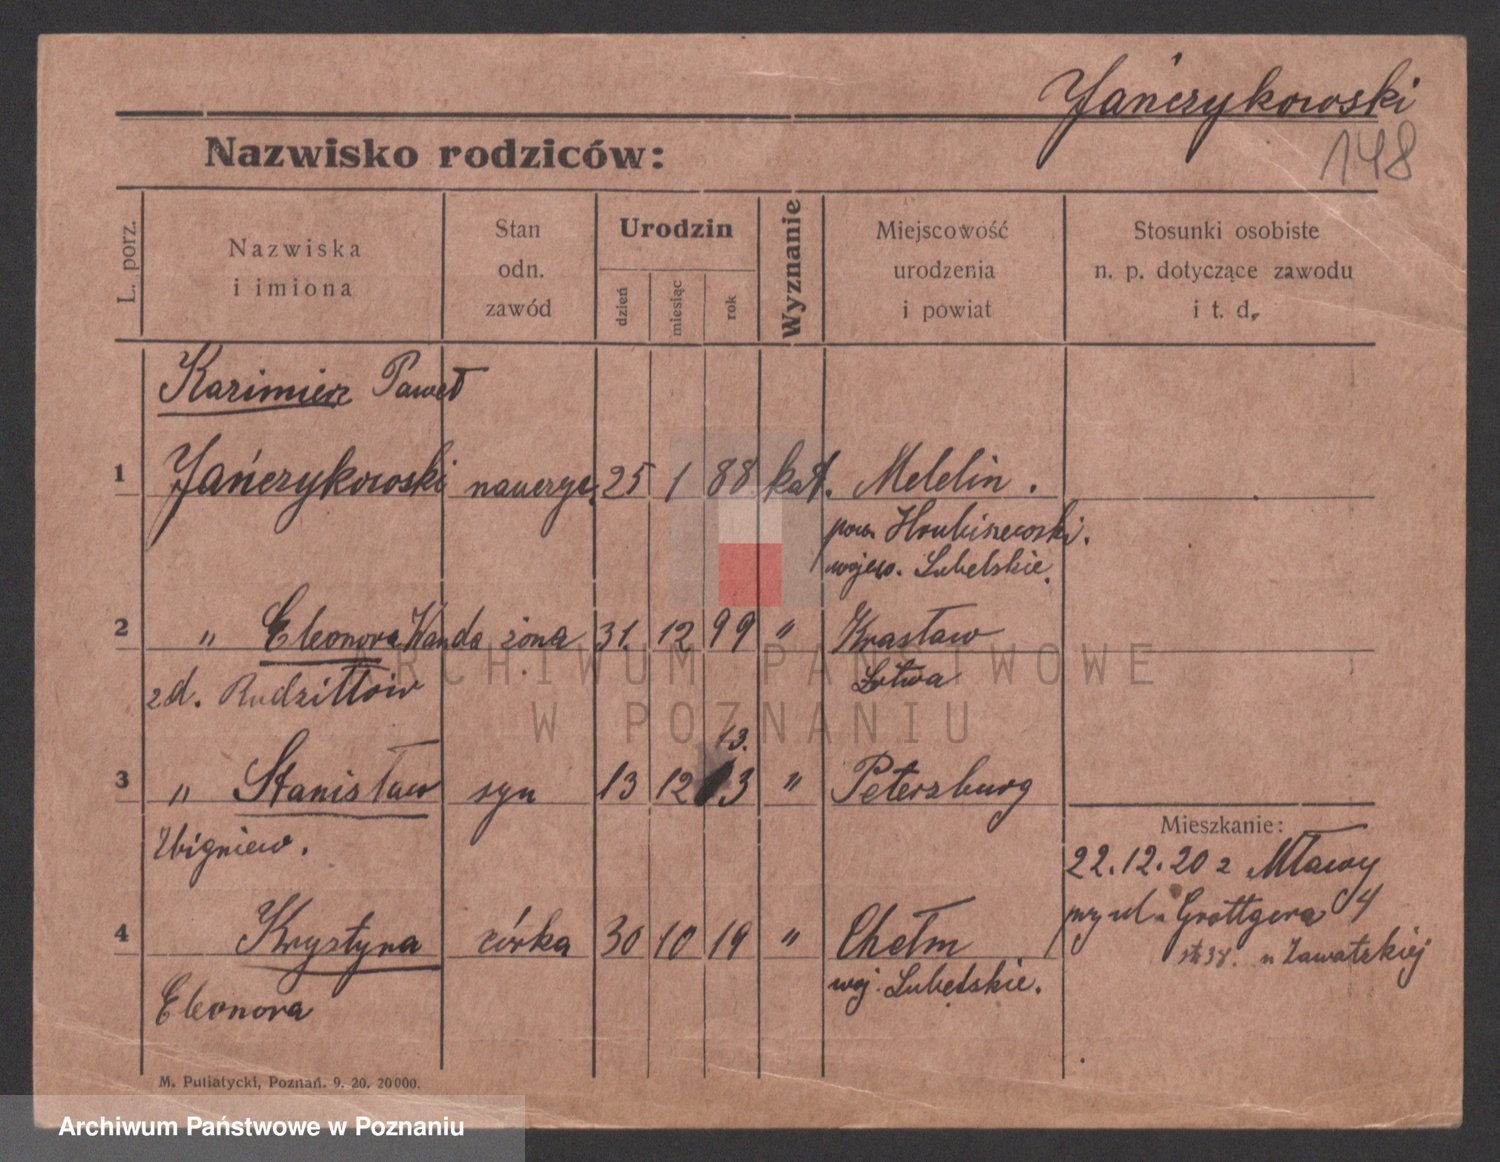 Jańczykowski
148
Nazwisko rodziców:
L. porz.
Nazwiska
i imiona
Stan
odn.
zawód
Urodzin
dzień
miesiąc
rok
Wyznanie
Miejscowość
urodzenia
i powiat
Stosunki osobiste
n. p. dotyczące zawodu
i t. d.
Kazimierz Paweł
1 Jańczykowski nauczyc. 25 1 88 kat. Mełelin.
pow. Hrubiszewski.
wojew. Lubelskie.
2 " Eleonora Wanda żona 31. 12 99 " Krasław
zd. Rudzittów Łotwa
13.
3 " Stanisław syn 13 12 13 " Petersburg
Zbigniew.
Mieszkanie:
22.12.20 z Mławy
4 Krystyna córka 30 10 19 " Chełm
przy ul. Grottgera 4
u Zawatzkiej
Eleonora woj. Lubelskie.
M. Putiatycki, Poznań. 9. 20. 20000.
ARCHIWUM PAŃSTWOWE
W POZNANIU
Archiwum Państwowe w Poznaniu